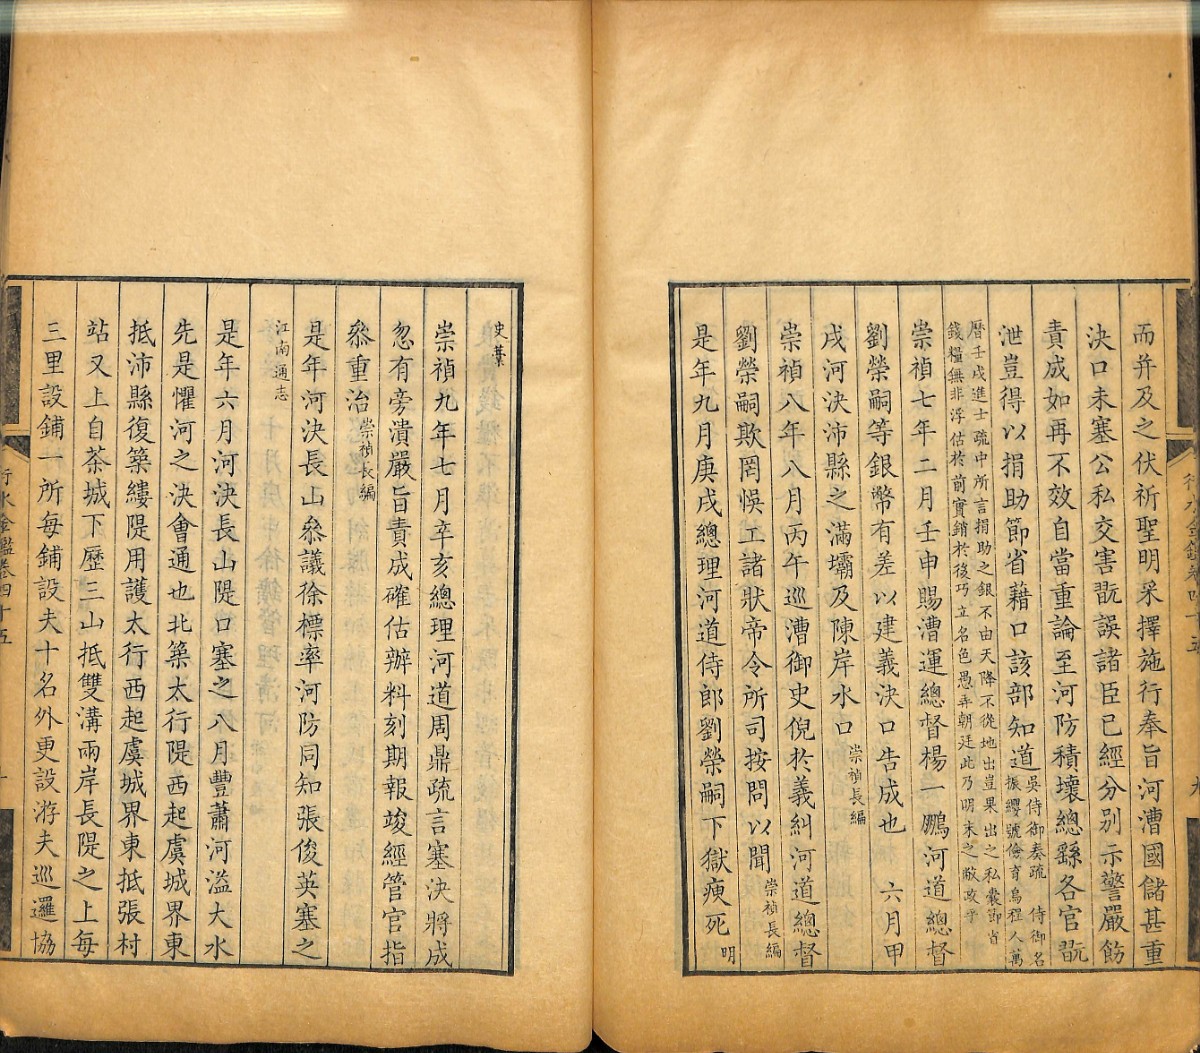 而并及之伏祈聖明采擇施行奉旨河漕國儲甚重
決口未塞公私交害既誤諸臣已經分別示警嚴飭
責成如再不效自當重論至河防積壞總繇各官翫
泄豈得以捐助節省藉口該部知道吳侍御奏疏 侍御名
振纓號儉育烏程人萬
曆壬戌進士疏中所言捐助之銀不由天降不從地出豈果出之私囊節省
錢糧無非浮估於前實銷於後巧立名色愚弄朝廷此乃明末之敝政
崇禎七年二月壬申賜漕運總督楊一鵬河道總督
劉榮嗣等銀幣有差以建義決口告成也 六月甲
戌河決沛縣之滿壩及陳岸水口崇禎長編
崇禎八年八月丙午巡漕御史倪於義糾河道總督
劉榮嗣欺罔悞工諸狀帝令所司按問以聞崇禎長編
是年九月庚戌總理河道侍郎劉榮嗣下獄瘐死明
史藁
崇禎九年七月辛亥總理河道周鼎疏言塞決將成
忽有旁潰嚴旨責成確估辦料刻期報竣經管官指
叅重治崇禎長編
是年河決長山叅議徐標率河防同知張俊英塞之
江南通志
是年六月河決長山隄口塞之八月豐蕭河溢大水
先是懼河之決會通也北築太行隄西起虞城界東
抵沛縣復築縷隄用護太行西起虞城界東抵張村
站又上自茶城下歷三山抵雙溝兩岸長隄之上每
三里設鋪一所每鋪設夫十名外更設游夫巡邏協
行水金鑑卷四十五